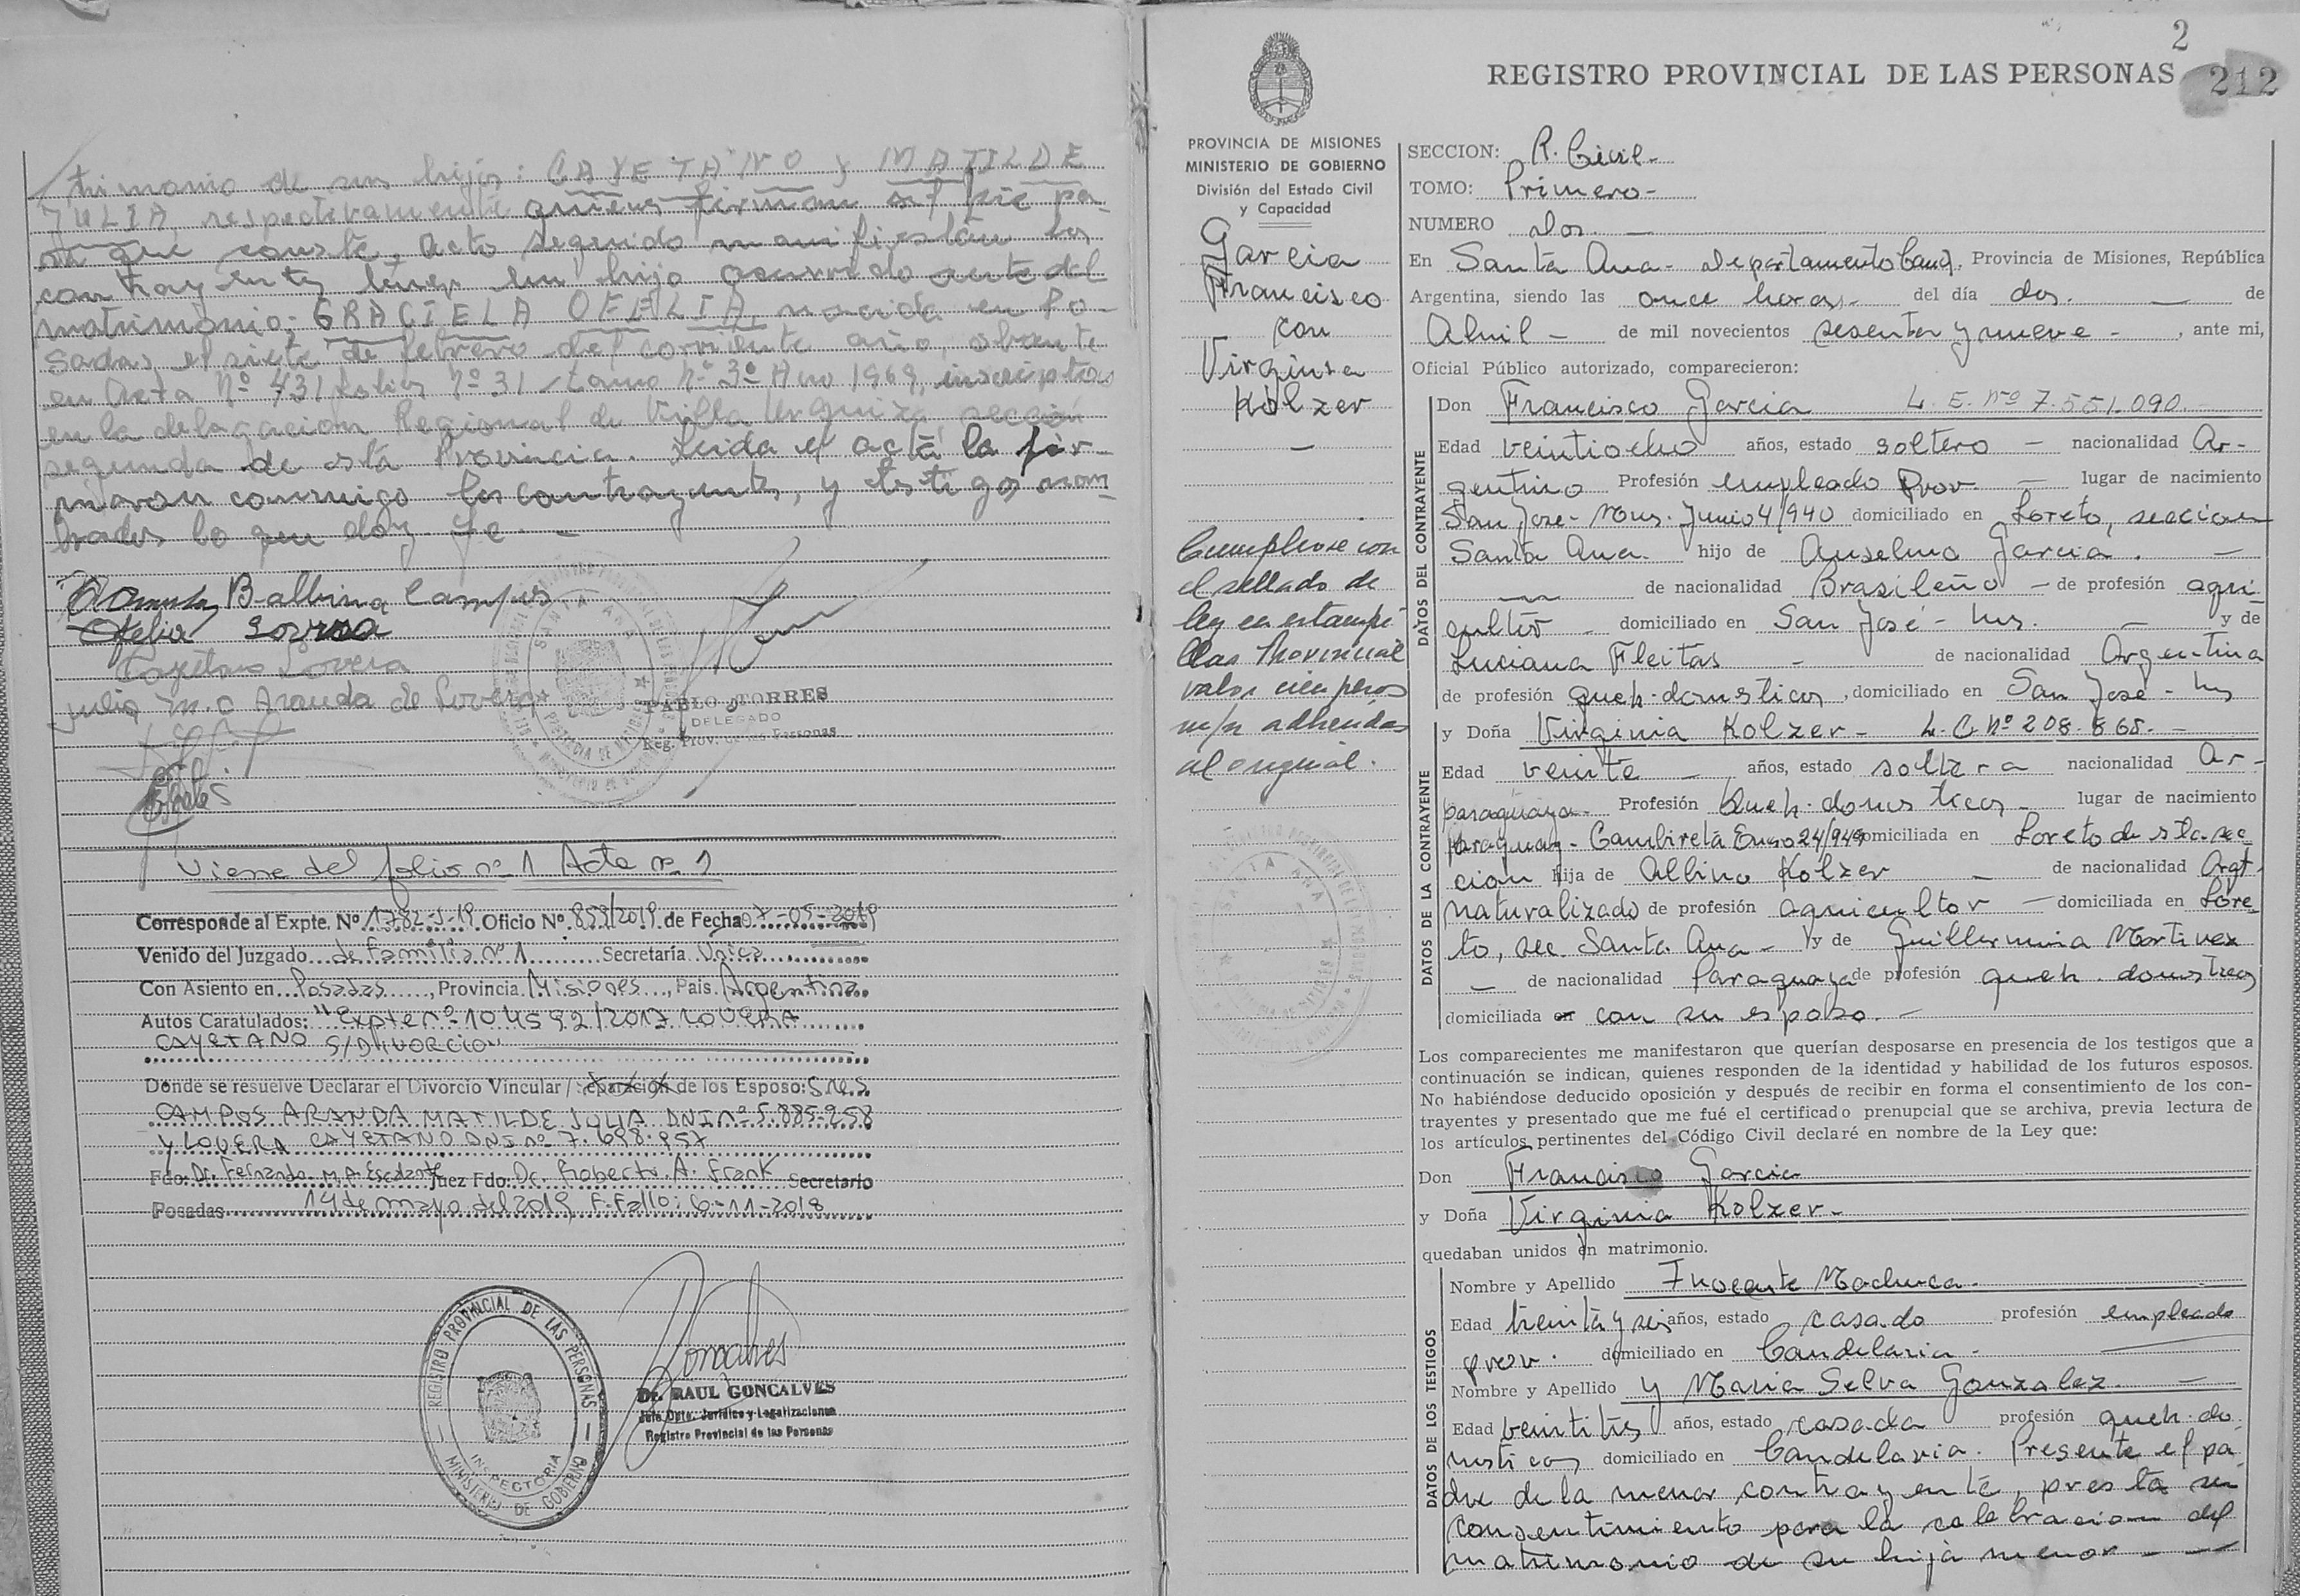 trimonio de sus hijos: CAYETANO y MATILDE
JULIA, respectivamente quienes firman al pie pa-
ra que conste, acto seguido manifiestan los
contrayentes tener un hijo ocurrido ante del
matrimonio: GRACIELA OFELIA, nacida en Po-
sadas el siete de febrero del corriente año, obrante
en Acta Nº 431 folios Nº 31 tomo Nº 3º Año 1969, inscripta
en la delegacion Regional de Villa Urquiza, sección
segunda de esta Provincia. Leida el acta la fir-
maron conmigo los contrayentes, y testigos nom-
brados lo que doy fe. -
Balbina Campos
Ofelia
Cayetano Lovera
Julia M. C Aranda de Lovera
SANTA ANA
PABLO TORRES
DELEGADO
Reg. Prov. de las Personas
Viene del folio nº 1 Acta nº 1
Corresponde al Expte. Nº 1782-J-19 Oficio Nº 859/2019 de Fecha 07-05-2019
Venido del Juzgado de Familia nº 1 Secretaría Unica
Con Asiento en Posadas, Provincia Misiones, Pais Argentina
Autos Caratulados: "Expte nº 104592/2017 LOVERA
CAYETANO S/DIVORCIO"
Donde se resuelve Declarar el Divorcio Vincular/Separación de los Esposo: Sres
CAMPOS ARANDA MATILDE JULIA DNI nº 5.885.258
y LOVERA CAYETANO DNI nº 7.698.957
Fdo: Dr. Fernando M.A. Escalante Juez Fdo: Dr. Roberto A. Frank Secretario
Posadas 14 de mayo del 2019 F. Fallo: 6-11-2018
REGISTRO PROVINCIAL DE LAS PERSONAS
INSPECTORIA
MINISTERIO DE GOBIERNO
Dr. RAUL GONCALVES
Jefe Dpto. Jurídico y Legalizaciones
Registro Provincial de las Personas
2
REGISTRO PROVINCIAL DE LAS PERSONAS 212
PROVINCIA DE MISIONES
MINISTERIO DE GOBIERNO
División del Estado Civil
y Capacidad
Garcia
Francisco
con
Virginia
Kolzer
-
Cumpliose con
el sellado de
ley en estampi
llas Provincial
valor cien pesos
m/n adheridas
al original.
SANTA ANA
SECCION: R. Civil -
TOMO: Primero -
NUMERO Dos. -
En Santa Ana - Departamento Cand. Provincia de Misiones, República
Argentina, siendo las once horas - del día dos. - de
Abril - de mil novecientos sesenta y nueve - , ante mi,
Oficial Público autorizado, comparecieron:
DATOS DEL CONTRAYENTE
Don Francisco Garcia L. E. Nº 7.551.090.
Edad veintiocho años, estado soltero - nacionalidad Ar-
gentino Profesión empleado Prov. - lugar de nacimiento
San José - Mnes. Junio 4/940 domiciliado en Loreto, seccion
Santa Ana. hijo de Anselmo Garcia. -
de nacionalidad Brasileño - de profesión agri-
cultor - domiciliado en San José - Mns. - y de
Luciana Fleitas - de nacionalidad Argentina
de profesión queh. domesticos, domiciliado en San José - Mns
DATOS DE LA CONTRAYENTE
y Doña Virginia Kolzer - L. C. Nº 208.865. -
Edad veinte - años, estado soltera nacionalidad Ar-
paraguaya - Profesión Queh. domesticos - lugar de nacimiento
Paraguay - Cambiretá Enero 24/949 domiciliada en Loreto de sta sec
cion hija de Albino Kolzer - de nacionalidad Argt.
naturalizado de profesión agricultor - domiciliada en Lore-
to, sec Santa Ana - y de Guillermina Martinez
- de nacionalidad Paraguaya de profesión queh. domesticos
domiciliada en con su esposo. -
Los comparecientes me manifestaron que querían desposarse en presencia de los testigos que a
continuación se indican, quienes responden de la identidad y habilidad de los futuros esposos.
No habiéndose deducido oposición y después de recibir en forma el consentimiento de los con-
trayentes y presentado que me fué el certificado prenupcial que se archiva, previa lectura de
los artículos pertinentes del Código Civil declaré en nombre de la Ley que:
Don Francisco Garcia
y Doña Virginia Kolzer -
quedaban unidos en matrimonio.
DATOS DE LOS TESTIGOS
Nombre y Apellido Inocente Machuca -
Edad treinta y seis años, estado casado profesión empleado
prov. domiciliado en Candelaria -
Nombre y Apellido y Maria Selva Gonzalez. -
Edad veintitres años, estado casada profesión queh. do-
mesticos domiciliado en Candelaria. Presente el pa-
dre de la menor contrayente, presta su
consentimiento para la celebracion del
matrimonio de su hija menor - -